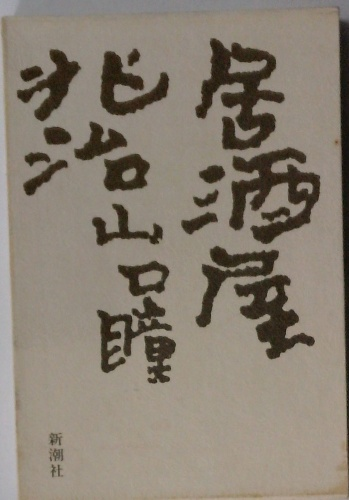 居酒屋
兆治山口瞳
新潮社